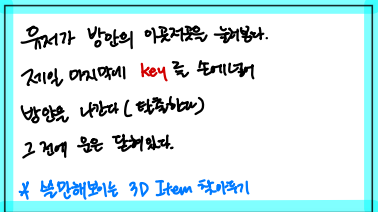 유저가 방안의 이곳저곳을 눌러본다.
제일 마지막에 key를 손에넣어
방안을 나간다 (탈출한다)
그 전에 문은 닫혀있다.
* 쓸만해보이는 3D Item 찾아두기